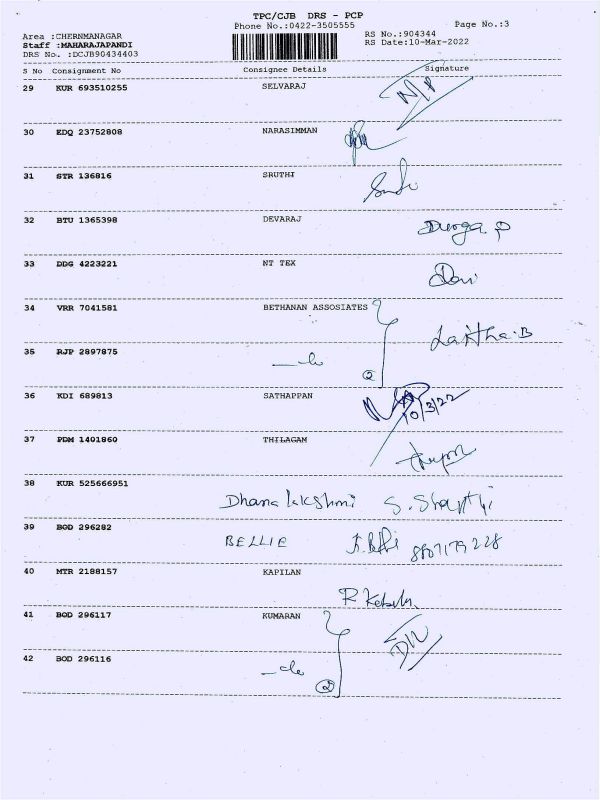 TPC/CJB DRS - PCP
Phone No.:0422-3505555
Page No.:3
Area :CHERNMANAGAR
RS No.:904344
Staff :MAHARAJAPANDI
RS Date:10-Mar-2022
DRS No. :DCJB90434403
S No Consignment No Consignee Details Signature
29 KUR 693510255 SELVARAJ
30 EDQ 23752808 NARASIMMAN
31 STR 136816 SRUTHI
32 BTU 1365398 DEVARAJ Durga. P
33 DDG 4223221 NT TEX
34 VRR 7041581 BETHANAN ASSOSIATES
Laitha.B
35 RJP 2897875
②
36 KDI 689813 SATHAPPAN
10/3/22
37 PDM 1401860 THILAGAM
38 KUR 525666951
Dhana lakshmi
39 BOD 296282 BELLIE
40 MTR 2188157 KAPILAN
41 BOD 296117 KUMARAN
42 BOD 296116
②